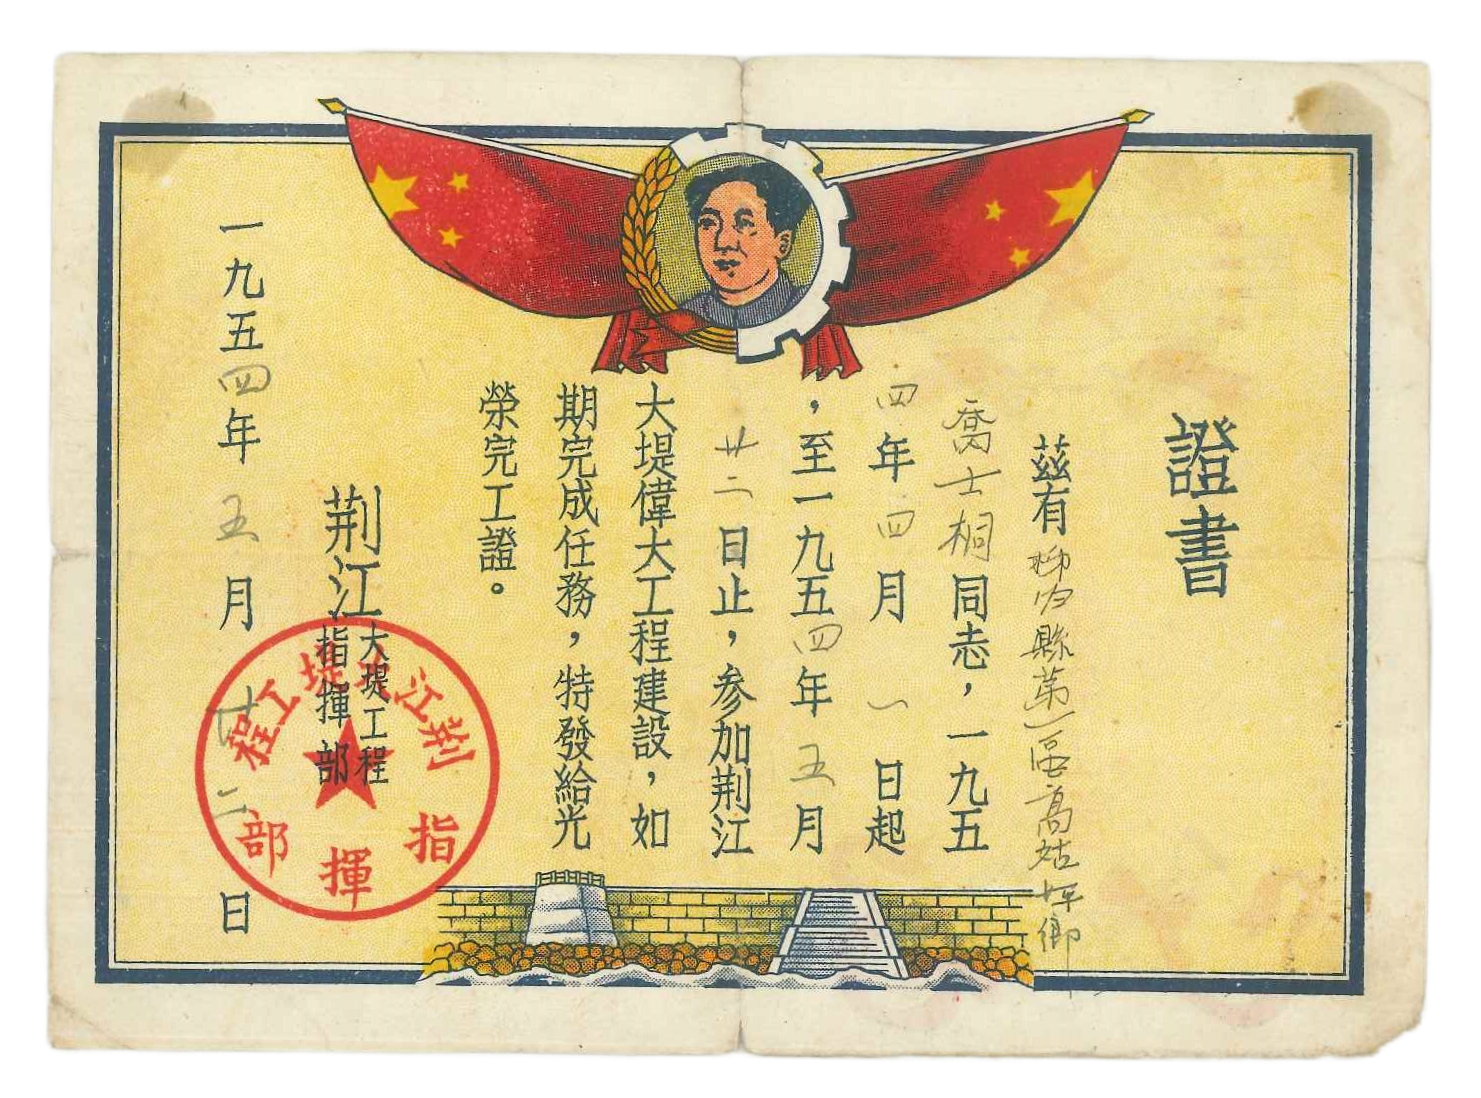 證書
茲有柳

縣第一區高姑坪鄉
喬士桐同志，一九五
四年四月一日起
，至一九五四年五月
廿二日止，参加荆江
大堤偉大工程建設，如
期完成任務，特發給光
榮完工證。
荆江大堤工程
指揮部
一九五四年五月廿二日
荆江大堤工程
指揮部